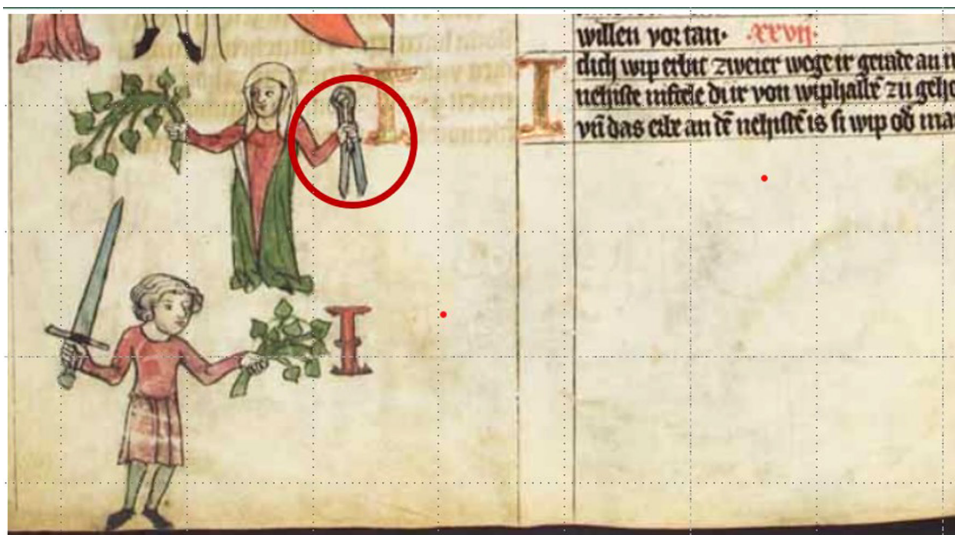 willen vortan· xxvij·
I dich wip erbit zweier wege ir gerade an
nehiste niftele di ir von wiphalbē zu geho
vñ das erbe an dē nehistē is si wip od ma
I
I